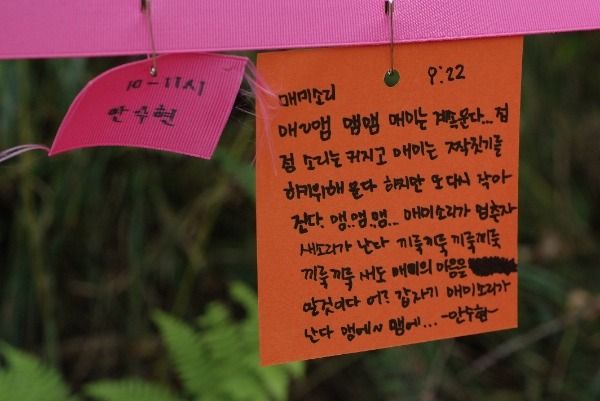 10-11시
안수현
매미소리 9:22
매~앰 맴맴 매미는 계속운다... 점
점 소리는 커지고 매미는 짝짓기를
하기위해 운다 하지만 또다시 작아
진다. 맴..맴..맴... 매미소리가 멈추자
새소리가 난다 끼룩끼룩 끼룩끼룩
끼룩끼룩 새도 매미의 마음을
알것이다 어? 갑자기 매미소리가
난다 맴에~ 맴에... -안수현-